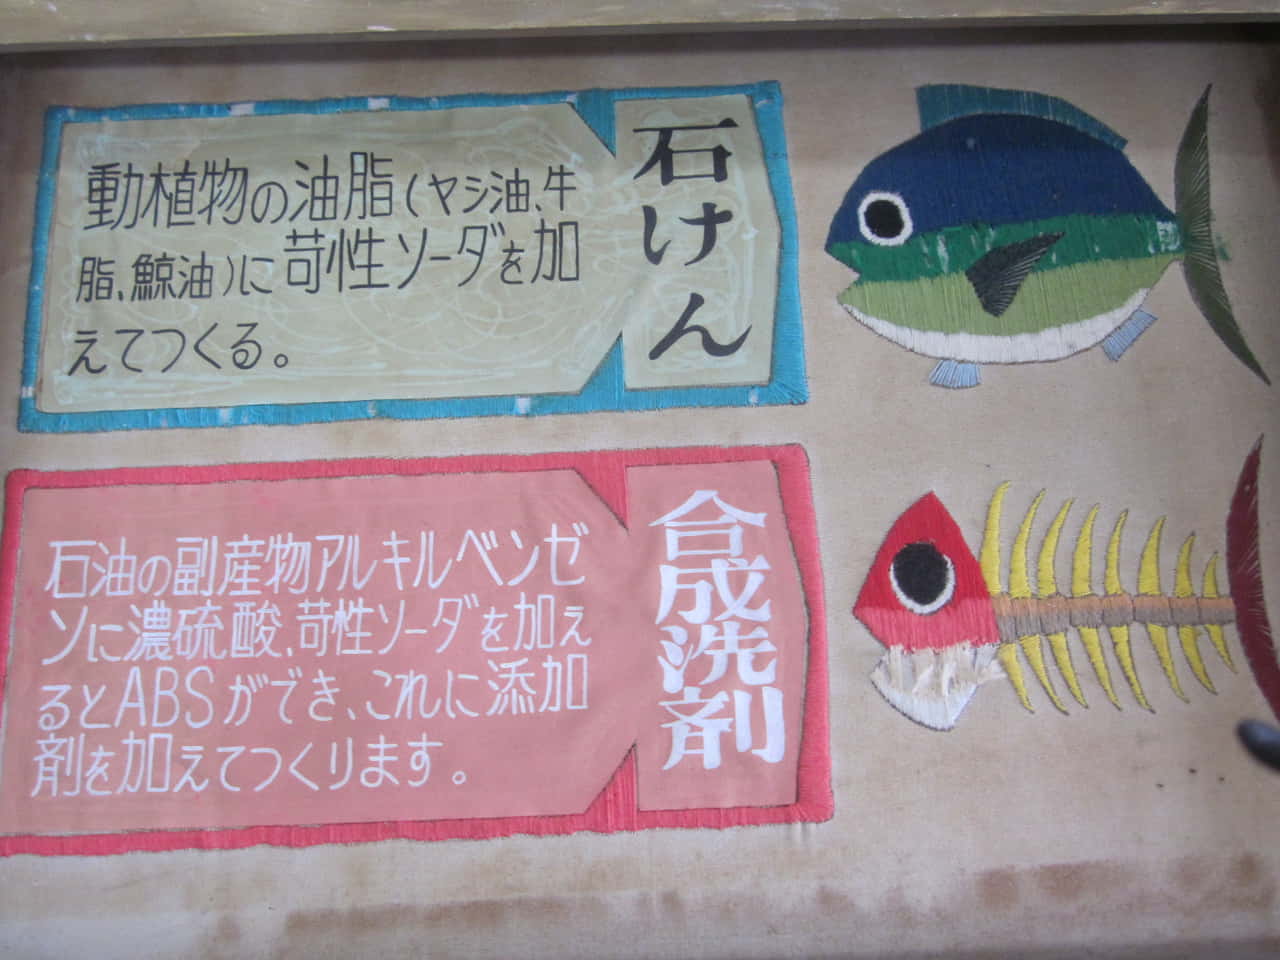 石けん
動植物の油脂(ヤシ油、牛
脂、鯨油)に苛性ソーダを加
えてつくる。
合成洗剤
石油の副産物アルキルベンゼ
ンに濃硫酸、苛性ソーダを加え
るとABSができ、これに添加
剤を加えてつくります。